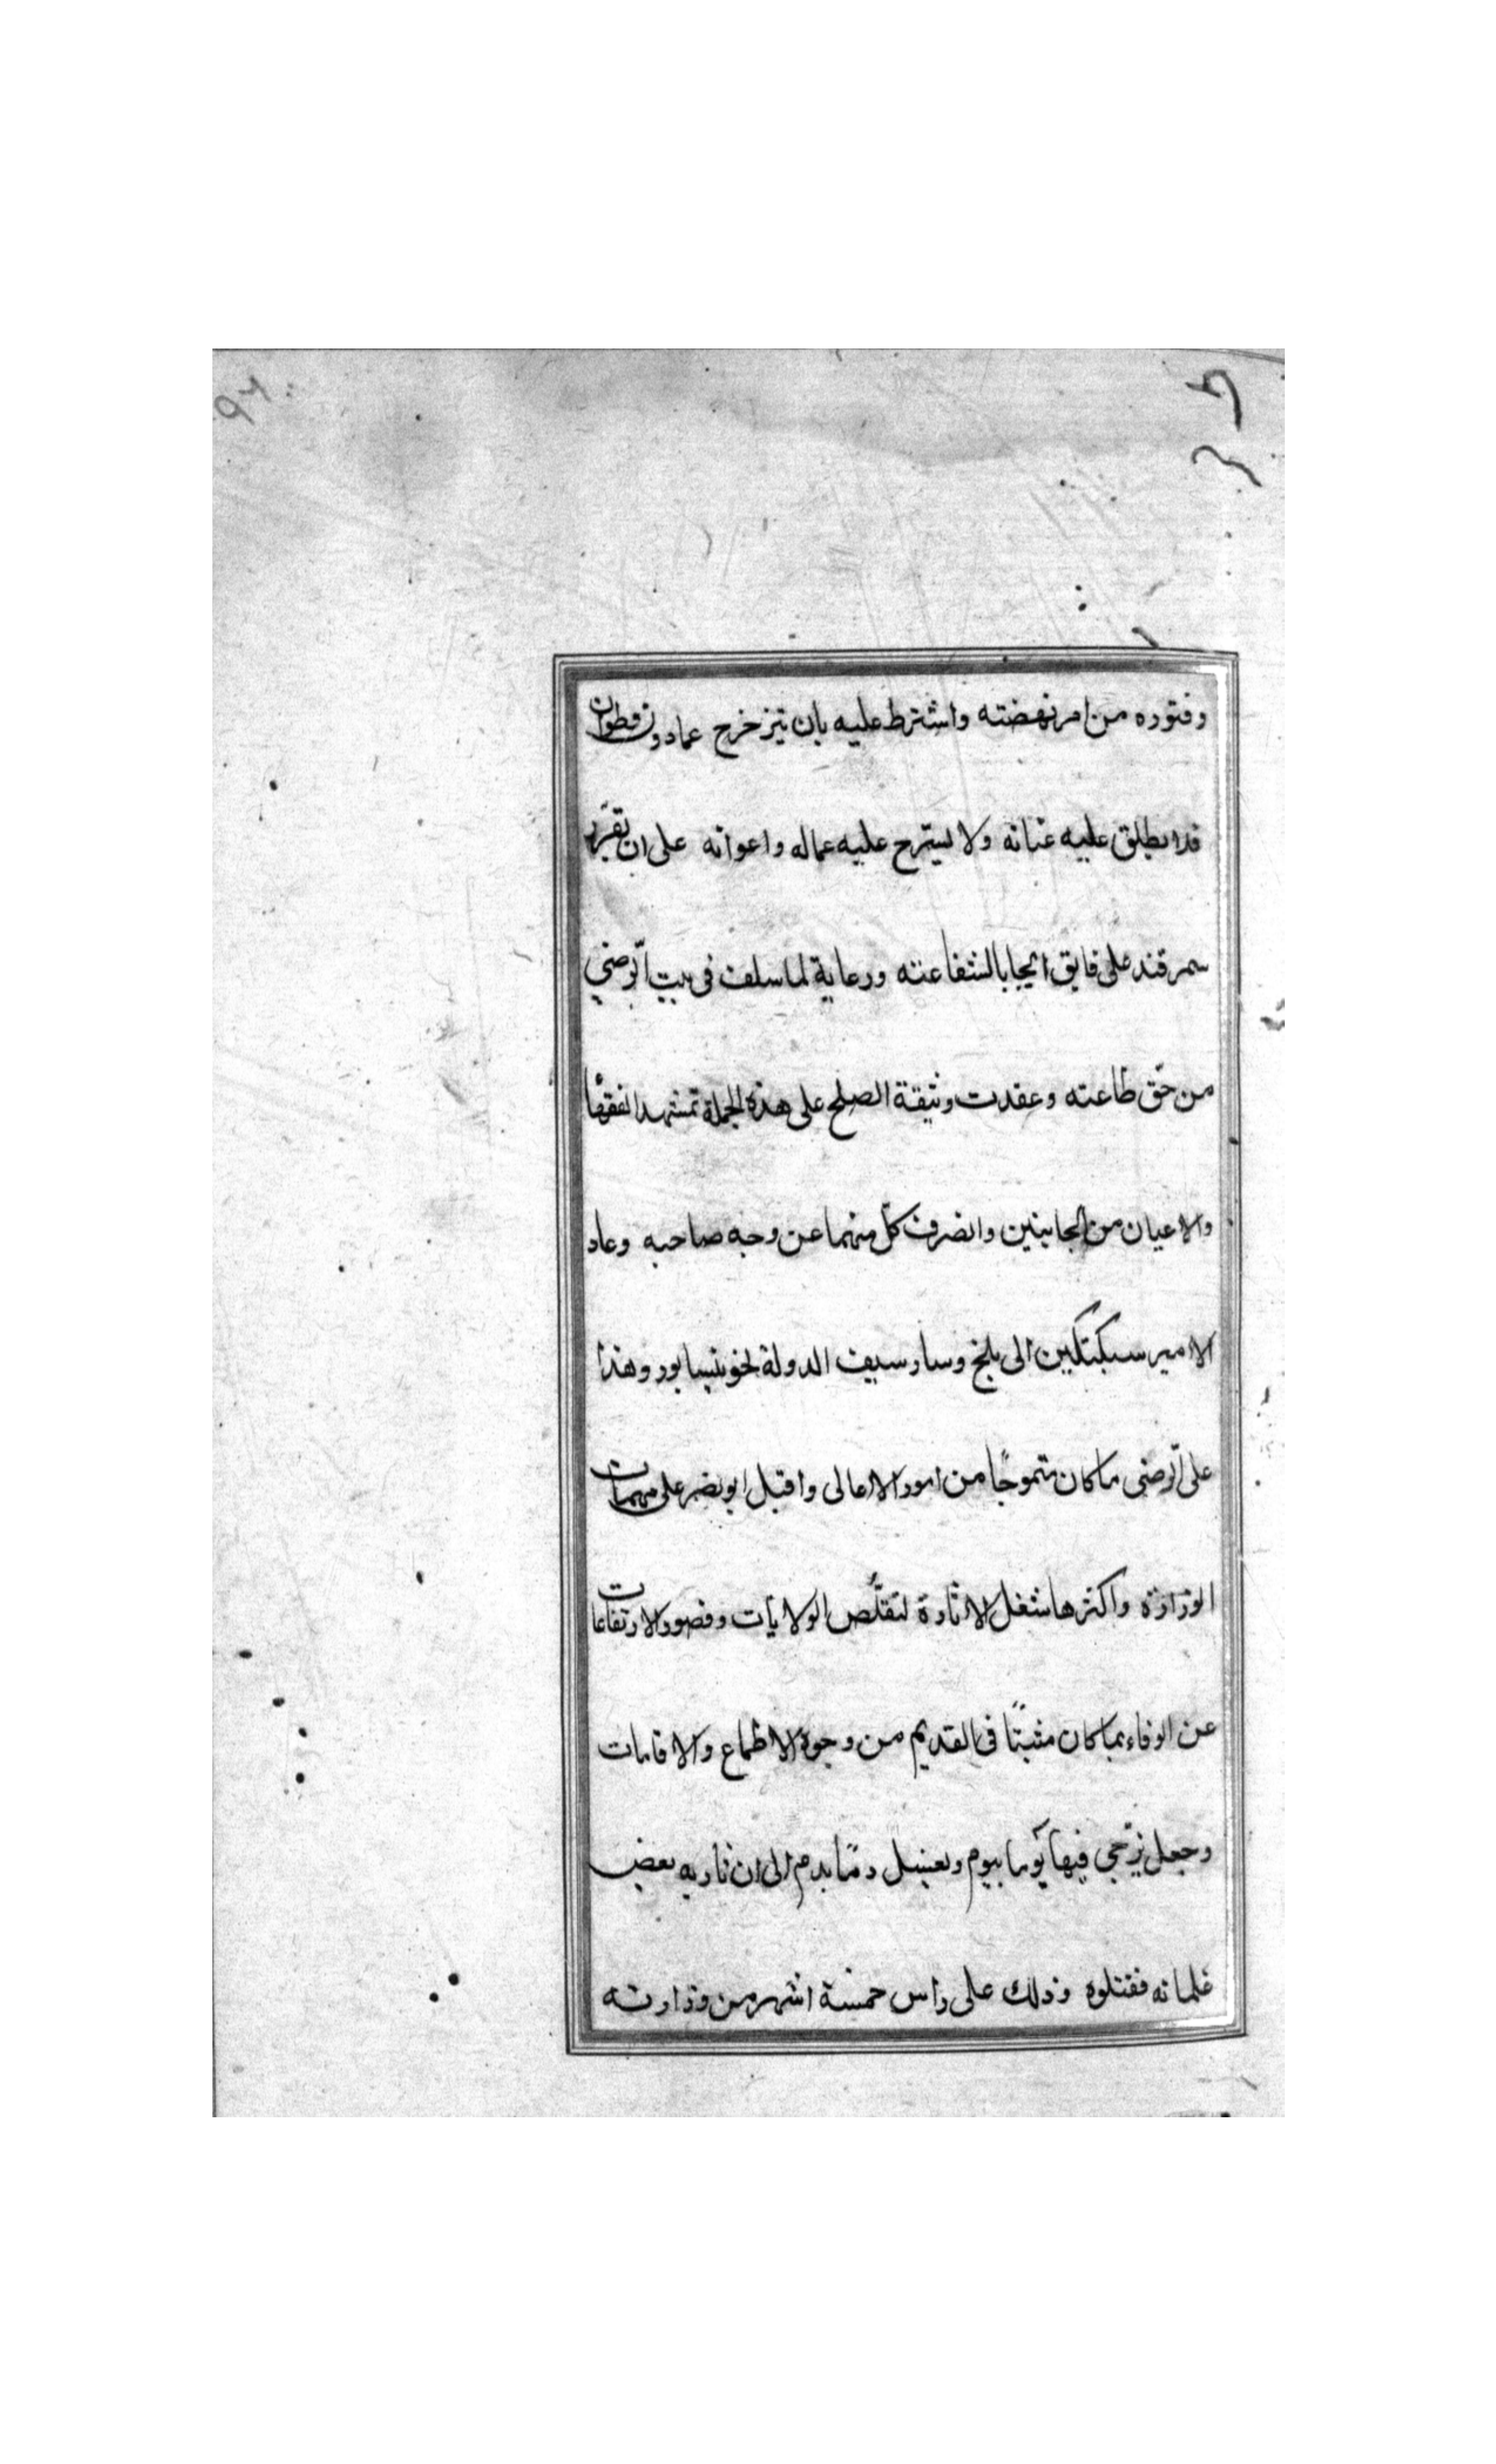 وفتوره من امر نهضته واشترط عليه بان يتزحزح عمادون قطوان
فلا يطلق عليه عنانه ولا يسترح عليه عماله واعوانه على ان تقرّر
سمرقند على فايق ايجابا لشفاعته ورعاية لما سلف فى بيت الرّضي
من حّق طاعته وعقدت وثيقة الصلح على هذه الجملة بمشهد الفقهأ
والاعيان من الجانبين وانصرف كلّ منهما عن وجه صاحبه وعاد
الامير سبكتكين الى بلخ وسار سيف الدولة نحو نيسابور وهذا
على الرّضى ما كان متموجًا من امور الاعالى واقبل ابو نصر على مهمات
الوزارة واكثرها شغل الاثارة لتقلّص الولايات وقصور الارتفاعات
عن الوفاء بما كان مثبتًا فى القديم من وجوه الاطماع والاقامات
وجعل يزّجي فيها يومًا بيوم ويغسل دمًا بدم الى ان ثار به بعض
غلمانه فقتلوه وذلك على راس خمسة اشهر من وزارته